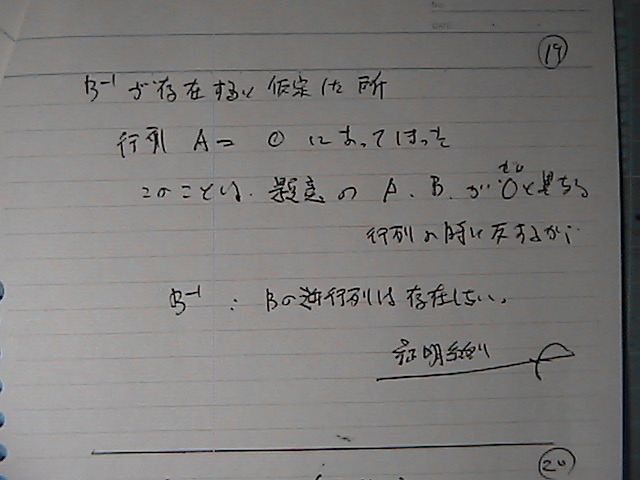 NO.
DATE
19
B⁻¹が存在すると仮定した所
行列 A = O になってしまった
このことは、題意の A, B, が Oと異なる
ゼロ
行列の時に反するから
B⁻¹ : Bの逆行列は存在しない。
証明終り
20